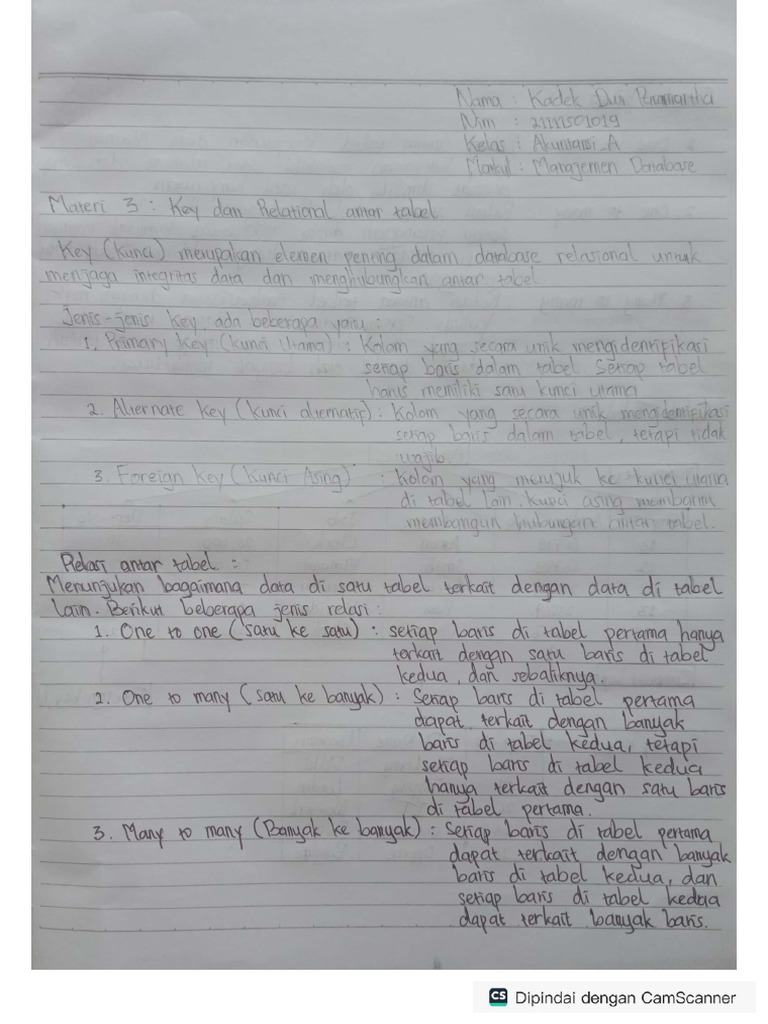 Nama : Kadek Dwi
Nim : 21111501019
Kelas : Akuntansi A
Matkul : Manajemen Database
Materi 3 : Key dan Relational antar tabel
Key (kunci) merupakan elemen pening dalam database relasional untuk
menjaga integritas data dan menghubungkan antar tabel
Jenis-jenis key ada beberapa yaitu :
1. Primary key (kunci utama) : Kolom yang secara unik mengidentifikasi
setiap baris dalam tabel. Setiap tabel
harus memiliki satu kunci utama
2. Alternate key (kunci alternatif) : Kolom yang secara unik mengidentifikasi
setiap baris dalam tabel, tetapi tidak
wajib.
3. Foreign key (Kunci Asing) : Kolom yang merujuk ke kunci utama
di tabel lain. kunci asing membantu
membangun hubungan antar tabel.
Relasi antar tabel :
Menunjukan bagaimana data di satu tabel terkait dengan data di tabel
lain. Berikut beberapa jenis relasi :
1. One to one (satu ke satu) : setiap baris di tabel pertama hanya
terkait dengan satu baris di tabel
kedua, dan sebaliknya.
2. One to many (satu ke banyak) : Setiap baris di tabel pertama
dapat terkait dengan banyak
baris di tabel kedua, tetapi
setiap baris di tabel kedua
hanya terkait dengan satu baris
di tabel pertama.
3. Many to many (Banyak ke banyak) : Setiap baris di tabel pertama
dapat terkait dengan banyak
baris di tabel kedua, dan
setiap baris di tabel kedua
dapat terkait banyak baris.
CS Dipindai dengan CamScanner